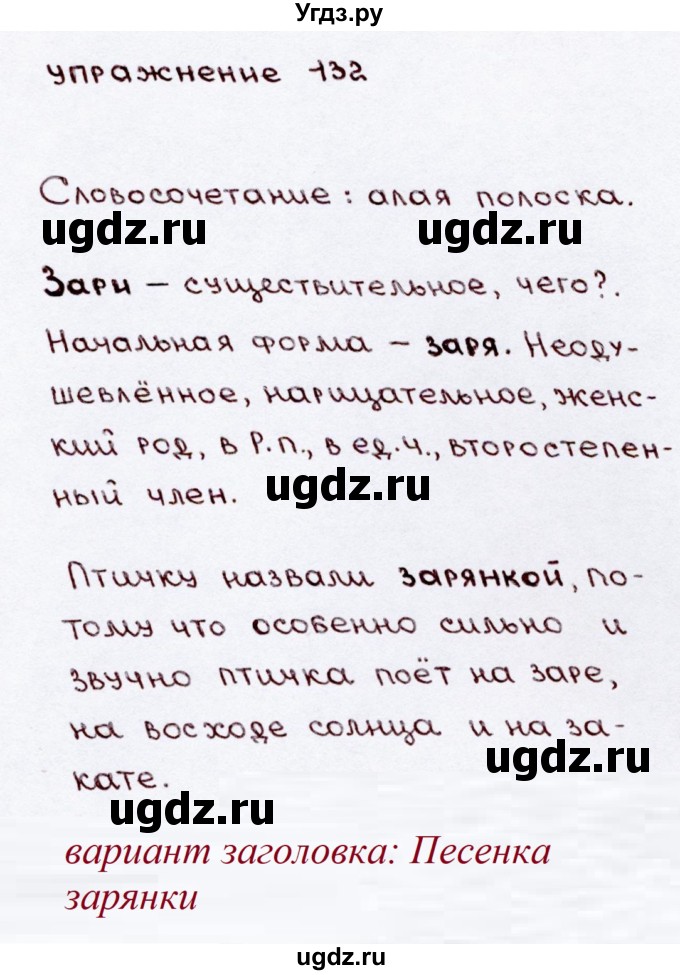 Угдз.ру
упражнение 132
Словосочетание: алая полоска.
ugdz.ru ugdz.ru
Зари – существительное, чего?.
Начальная форма – заря. Неоду-
шевлённое, нарицательное, женс-
кий род, в Р.п., в ед.ч., второстепен-
ный член. ugdz.ru
Птичку назвали зарянкой, по-
тому что особенно сильно и
звучно птичка поёт на заре,
на восходе солнца и на за-
ugdz.ru
кате.
ugdz.ru
вариант заголовка: Песенка
зарянки
ugdz.ru